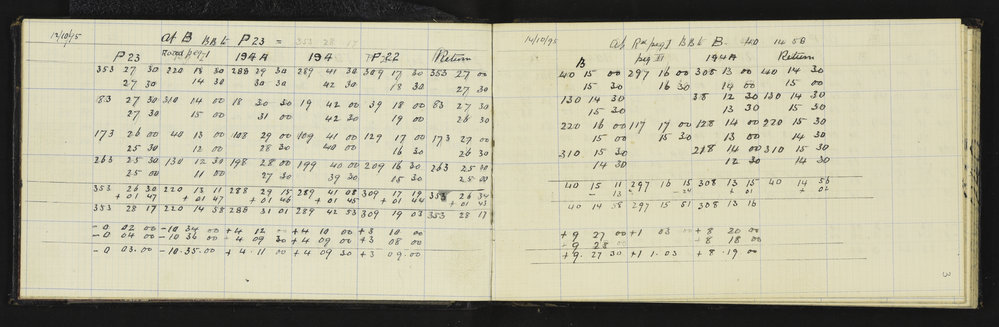 12/10/95 At B BB to P 23 = 353 28 17
P 23 Road peg I 194 A 194 P 22 Return
353 27 30 220 13 30 288 29 30 289 41 30 309 17 30 353 27 00
27 30 14 30 30 30 42 30 18 30 27 30
83 27 30 310 14 00 18 30 30 19 42 00 39 18 00 83 27 30
27 30 15 00 31 00 42 30 19 00 26 30
173 26 00 40 13 00 108 29 00 109 41 00 129 17 00 173 27 00
25 30 12 00 28 30 40 00 16 30 26 30
263 25 30 130 12 30 198 28 00 199 40 00 209 16 30 263 25 30
25 00 11 00 27 30 39 30 15 30 25 00
353 26 30 220 13 11 288 29 15 289 41 08 309 17 19 353 26 34
+ 01 47 + 01 47 + 01 46 + 01 45 + 01 44 + 01 43
353 28 17 220 14 58 288 31 01 289 42 53 309 19 03 353 28 17
- 0 02 00 - 10 34 00 + 4 12 00 + 4 10 00 + 3 10 00
- 0 04 00 - 10 36 00 + 4 09 30 + 4 09 00 + 3 08 00
- 0 03.00 - 10.35.00 + 4.11 00 + 4 09 30 + 3 09.00
14/10/95 At Rd peg I BB to B 40 14 58
B peg II 194A Return
40 15 00 297 16 00 308 13 00 40 14 30
15 30 16 30 14 00 15 00
130 14 30 38 12 30 130 14 30
15 30 13 30 15 30
220 16 00 117 17 00 128 14 00 220 15 30
15 00 15 30 13 00 14 30
310 15 30 218 14 00 310 15 30
14 30 12 30 14 30
40 15 11 297 16 15 308 13 15 40 14 56
- 13 - 24 + 01 + 02
40 14 58 297 15 51 308 13 16
+ 9 27 00 + 1 03 00 + 8 20 00
+ 9 28 00 + 8 18 00
+ 9. 27 30 + 1 1.03 + 8.19 00
3